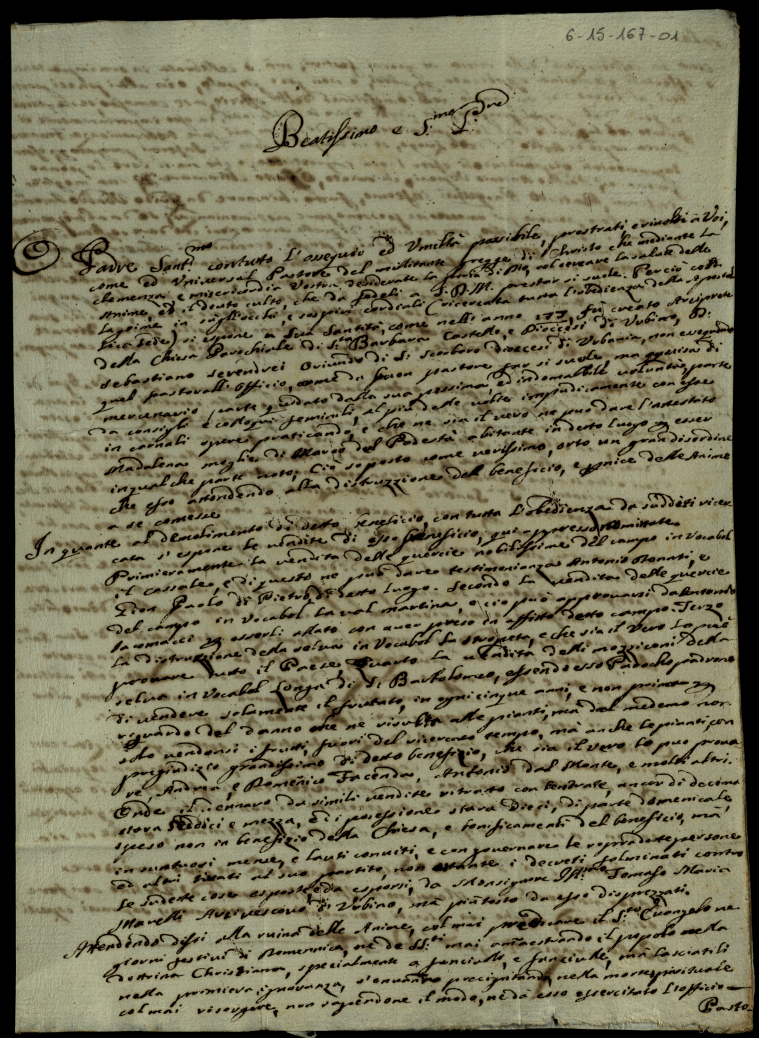 6-15-167-01
Beatissimo e S.mo P.dre
Padre Sant.mo con tutto l'ossequio ed Umiltà possibile, prostrati e rivolti à Voi,
come ad Universal Pastore del militante gregge di Christo che mediante La
clemenza, e misericordia Vostra desiderate la gloria di Dio, volenzare la salute delle
Anime, ed il dovuto culto, che da fedeli a S. D. M. prestar si suole. Perciò colle
Lagrime in sugl'occhi e sospiri cordiali (ricercata tutta l'obedienza della Aposto
lica Sede) si espone a Sua Santità, come nell'anno 177 fù creato Arciprete
della Chiesa Parochiale di S.ta Barbara Castello, e Diocesi di Urbino, D.
Sebastiano Oriundo di S. diocesi di Urbania, non eseguendo
quel Pastorall'officio, come da buon pastore far si suole, ma à guisa di
mercenario, parte guidato dalla sua pessima, ed indomabile volontà, parte
da consigli e colloqui feminili, al più delle volte impudicamente con esse
in carnali opere praticando, e che ne sia il vero ne può dare l'attestato
Madalena moglie di Marco del Podestà abitante in detto Luogo per esser
in qualche parte noto; Ciò soposto come verissimo, orto un gran disordine
che esso attendendo alla distruzzione del beneficio, e pernice delle Anime
a se comesse
In quante al demolimento di detto beneficio, con tutta l'obedienza da sudditi ricer
cata si espone le vendite di esso beneficio, qui appresso nominate.
Primieramente la vendita delle quercie nobilissime del campo in Vocabol
il Cassale, e di questo ne può dare testimonianza Antonio Donati, e
Gion Paolo di Pietro di detto Luogo. Secondo la vendita delle quercie
del campo in Vocabol la val martina, e ciò può approvarsi da Antonio
Iacomacci per esserli allato con aver preso in affitto detto campo. Terzo
La distruzzione della selva in Vocabol La, e che sia il Vero Lo può
provare tutto il Paese. Quarto La vendita delli mozziconi della
selva in Vocabol Longa di S. Bartolomeo, essendo esso Parocho padrone
di vendere solamente il fruttato, in ogni cinque anni, e non prima per
riguardo del danno che ne risulta alle pianti, mà dal medemo non
solo vendonsi i frutti, fuori del ricercato tempo, mà anche le pianti con
pregiudizio grandissimo di detto beneficio, che sia il vero lo può prova
re Andrea, e Domenico Facenda, Antonio dal Monte, e molti altri.
Onde il dennaro da simili vendite ritratto con l'entrate, ancor di decima
stara sedici e mezza, ed i possessione stara Dieci, di parte domenicale
speso non in benefizio della Chiesa, e bonificamenti del beneficio, mà
in suntuosi mense, e lauti conviti, e con governare le sopradette persone
ed altri tirati al suo partito, non ostante i decreti fulminati contro
le sudette cose esposte e da esporsi, da Monsignore Ill.mo Tomaso Maria
Marelli Arcivescovo di Urbino, mà piutosto da esso disprezzati.
Attendendo dissi alla ruina delle Anime, col mai predicare il S.to Evangelo ne
giorni festivi di Domennica, ne de SS.ti mai amaestrando il popolo nella
dottrina Christiana, specialmente a fanciulli, e fanciulle, mà lasciatili
nella primiera ignoranza, s'en vanno precipitando nella morte spirituale
col mai risorgere, non sapendone il modo, ne da esso essercitato l'officio
Pasto-